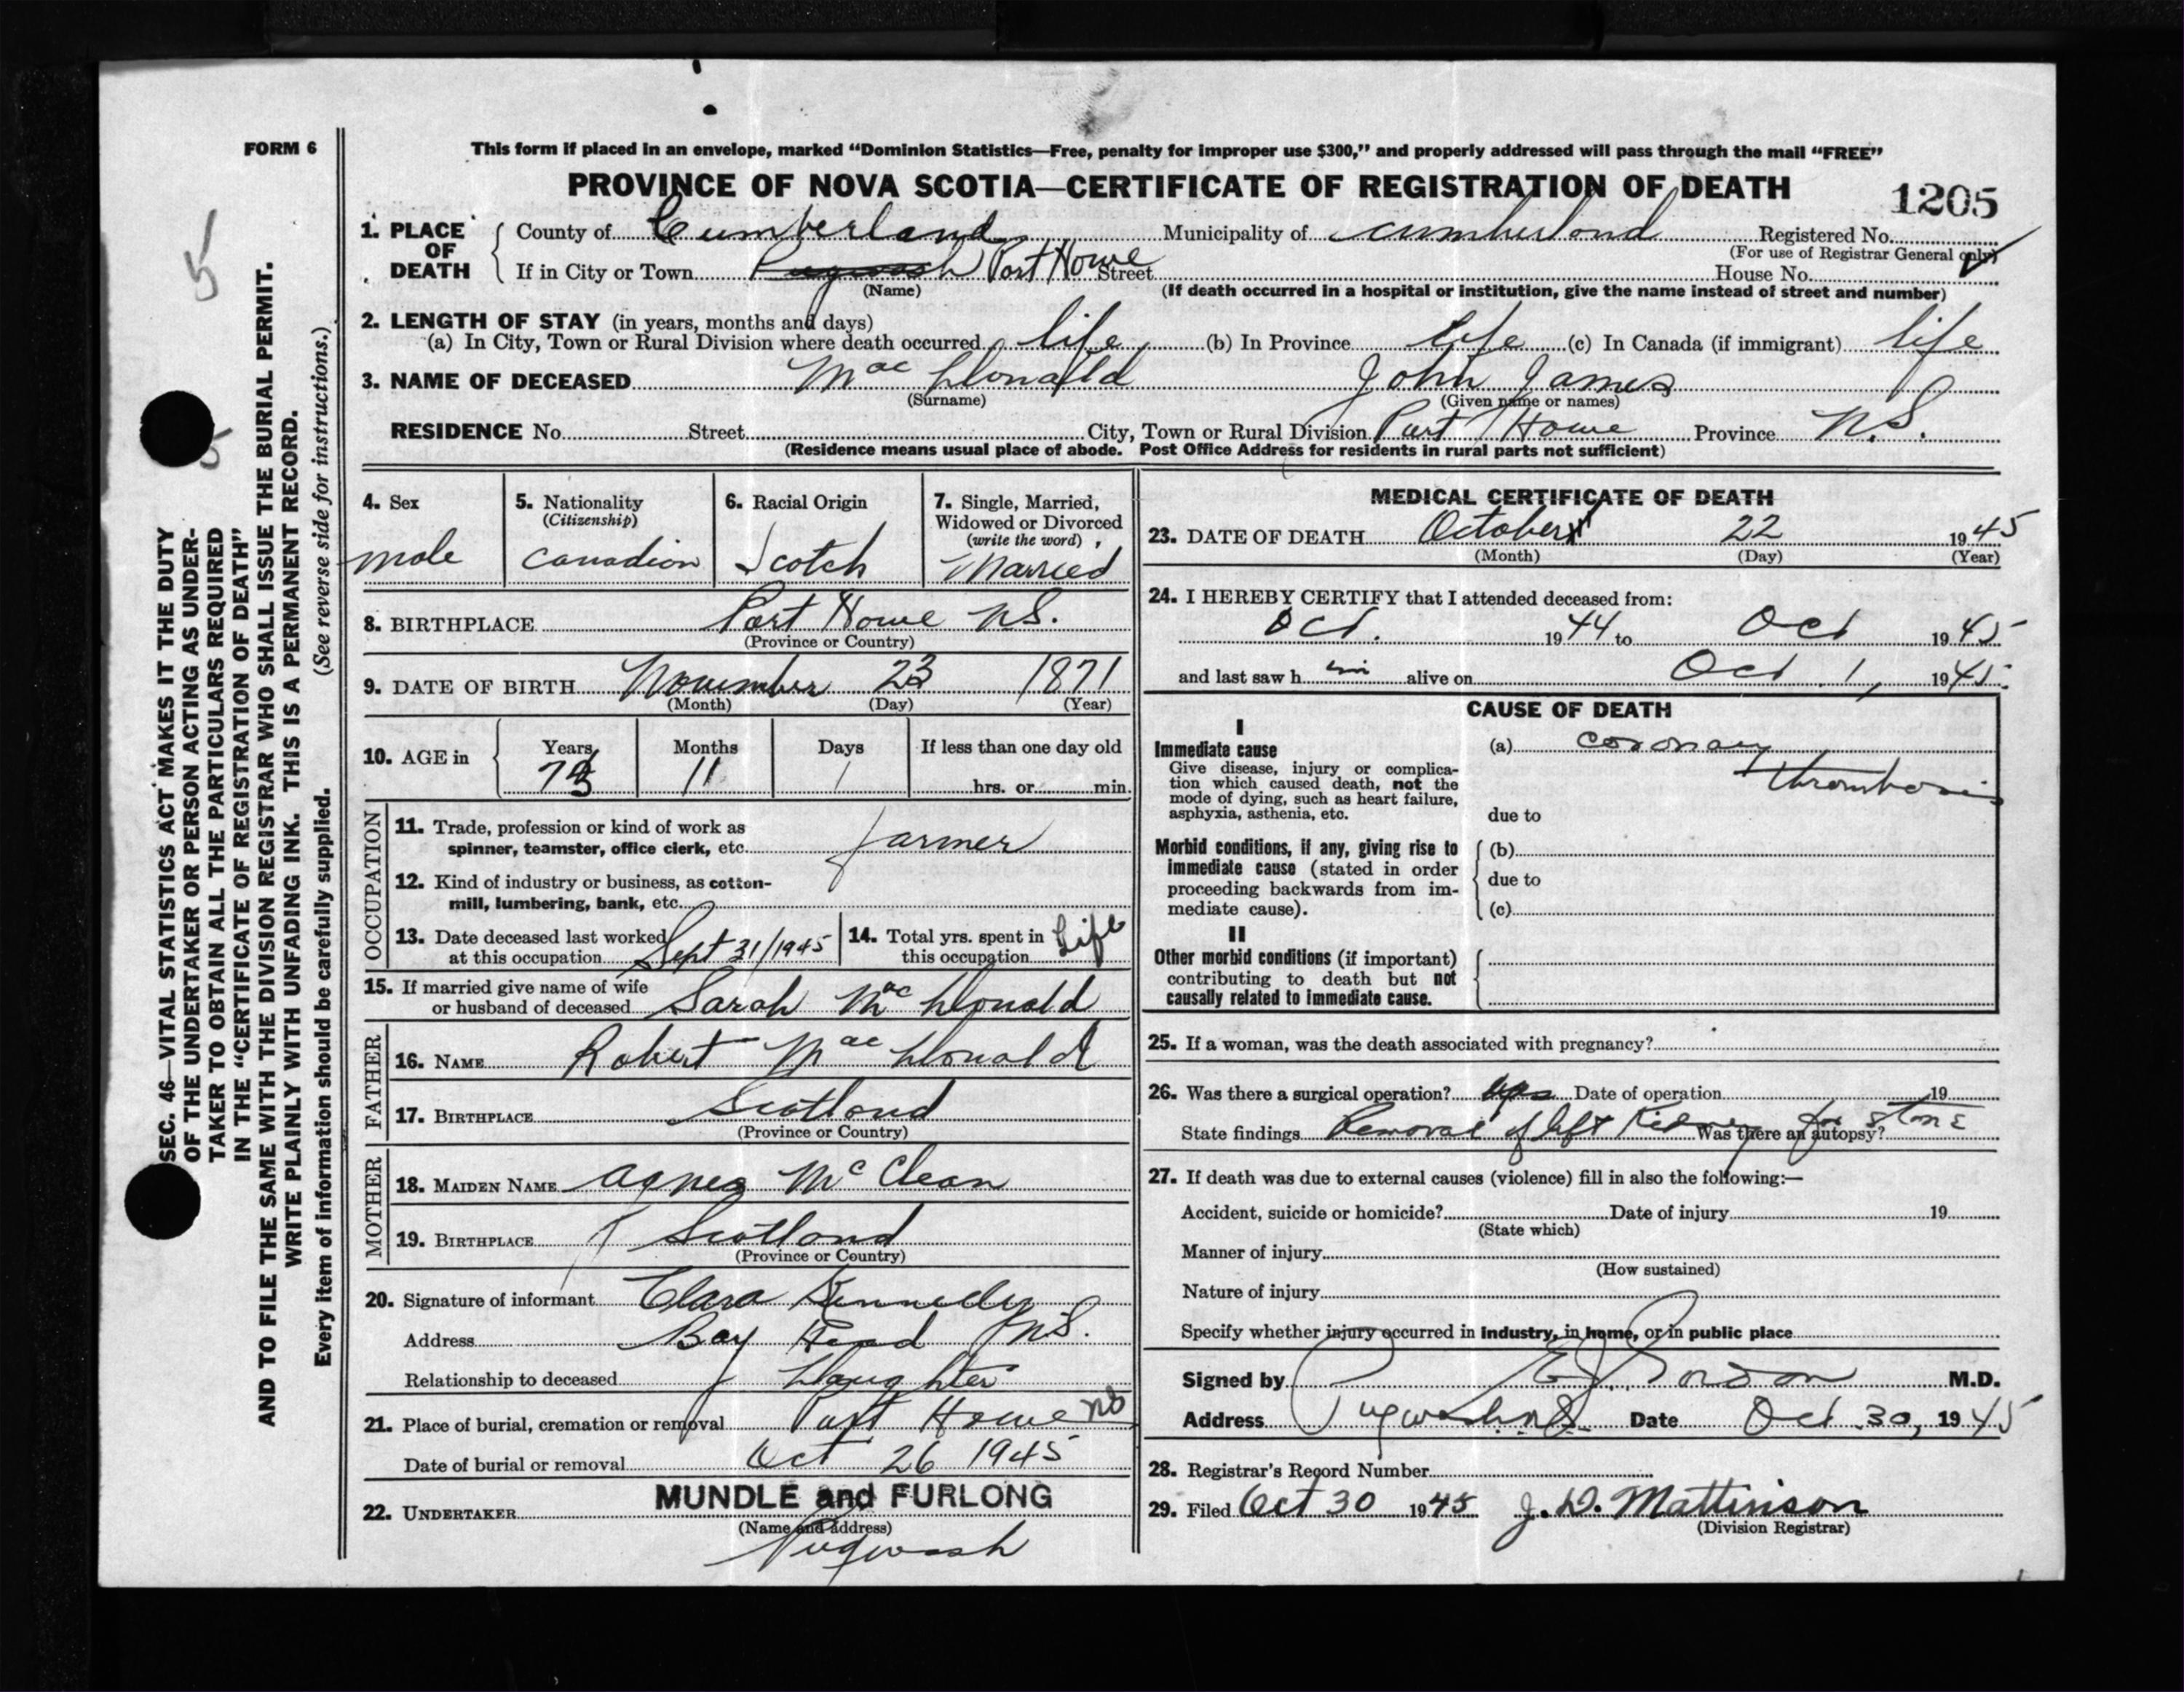 FORM 6
This form if placed in an envelope, marked “Dominion Statistics—Free, penalty for improper use $300,” and properly addressed will pass through the mail “FREE”
PROVINCE OF NOVA SCOTIA—CERTIFICATE OF REGISTRATION OF DEATH
1205
5
1. PLACE OF DEATH
County of Cumberland Municipality of Cumberland Registered No.
(For use of Registrar General only)
If in City or Town Pugwash Port Howe Street House No.
(Name) (If death occurred in a hospital or institution, give the name instead of street and number)
2. LENGTH OF STAY (in years, months and days)
(a) In City, Town or Rural Division where death occurred life (b) In Province life (c) In Canada (if immigrant) life
3. NAME OF DECEASED MacDonald John James
(Surname) (Given name or names)
RESIDENCE No. Street City, Town or Rural Division Port Howe Province N.S.
(Residence means usual place of abode. Post Office Address for residents in rural parts not sufficient)
SEC. 46—VITAL STATISTICS ACT MAKES IT THE DUTY
OF THE UNDERTAKER OR PERSON ACTING AS UNDER-
TAKER TO OBTAIN ALL THE PARTICULARS REQUIRED
IN THE “CERTIFICATE OF REGISTRATION OF DEATH”
AND TO FILE THE SAME WITH THE DIVISION REGISTRAR WHO SHALL ISSUE THE BURIAL PERMIT.
WRITE PLAINLY WITH UNFADING INK. THIS IS A PERMANENT RECORD.
Every item of information should be carefully supplied. (See reverse side for instructions.)
4. Sex
male
5. Nationality
(Citizenship)
Canadian
6. Racial Origin
Scotch
7. Single, Married,
Widowed or Divorced
(write the word)
Married
8. BIRTHPLACE Port Howe N.S.
(Province or Country)
9. DATE OF BIRTH November 23 1871
(Month) (Day) (Year)
10. AGE in
Years Months Days If less than one day old
73 11 1 hrs. or min.
OCCUPATION
11. Trade, profession or kind of work as
spinner, teamster, office clerk, etc. farmer
12. Kind of industry or business, as cotton-
mill, lumbering, bank, etc.
13. Date deceased last worked
at this occupation Sept 31/1945
14. Total yrs. spent in
this occupation Life
15. If married give name of wife
or husband of deceased Sarah MacDonald
FATHER
16. NAME Robert MacDonald
17. BIRTHPLACE Scotland
(Province or Country)
MOTHER
18. MAIDEN NAME Agnes McClean
19. BIRTHPLACE Scotland
(Province or Country)
20. Signature of informant Clara Kennedy
Address Bay Head N.S.
Relationship to deceased Daughter
21. Place of burial, cremation or removal Port Howe NS
Date of burial or removal Oct 26 1945
22. UNDERTAKER MUNDLE and FURLONG
(Name and address)
Pugwash
MEDICAL CERTIFICATE OF DEATH
23. DATE OF DEATH October 22 1945
(Month) (Day) (Year)
24. I HEREBY CERTIFY that I attended deceased from:
Oct. 1944 to Oct 1945
and last saw him alive on Oct. 1, 1945
CAUSE OF DEATH
I
Immediate cause
Give disease, injury or complica-
tion which caused death, not the
mode of dying, such as heart failure,
asphyxia, asthenia, etc.
(a) coronary
thrombosis
due to
Morbid conditions, if any, giving rise to
immediate cause (stated in order
proceeding backwards from im-
mediate cause).
(b)
due to
(c)
II
Other morbid conditions (if important)
contributing to death but not
causally related to immediate cause.
25. If a woman, was the death associated with pregnancy?
26. Was there a surgical operation? yes Date of operation 19
State findings Removal of left Kidney for stone Was there an autopsy?
27. If death was due to external causes (violence) fill in also the following:—
Accident, suicide or homicide? Date of injury 19
(State which)
Manner of injury
(How sustained)
Nature of injury
Specify whether injury occurred in industry, in home, or in public place
Signed by E J Gordon M.D.
Address Pugwash N.S. Date Oct 30, 1945
28. Registrar's Record Number
29. Filed Oct 30 1945 J. D. Mattinson
(Division Registrar)